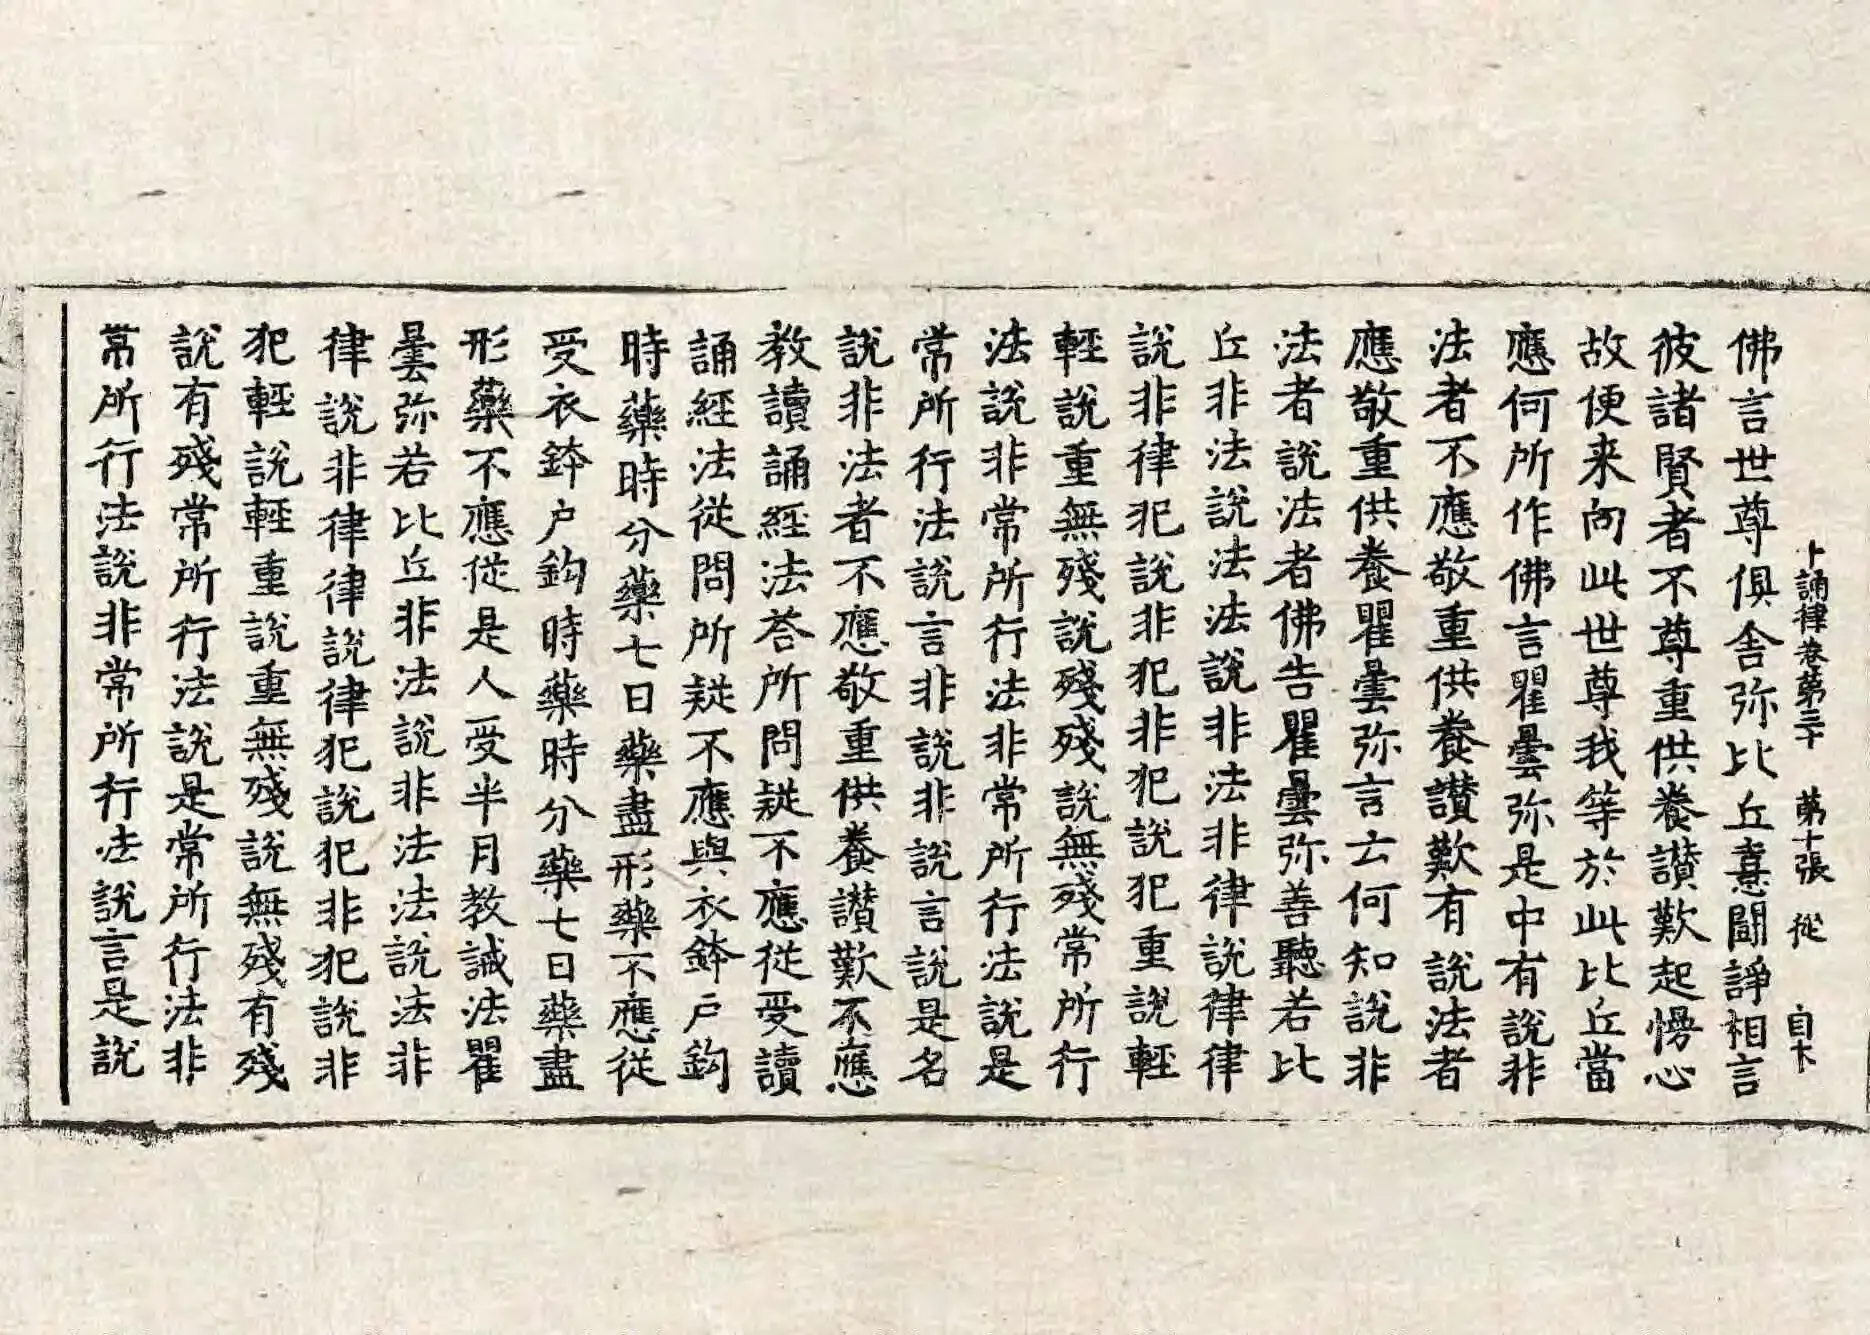 十誦律卷第三十 第十張 從 自卞
佛言世尊俱舍弥比丘憙鬪諍相言
彼諸賢者不尊重供養讃歎起慢心
故便来向此世尊我等於此比丘當
應何所作佛言瞿曇弥是中有說非
法者不應敬重供養讃歎有說法者
應敬重供養瞿曇弥言云何知說非
法者說法者佛告瞿曇弥善聽若比
丘非法說法法說非法非律說律律
說非律犯說非犯非犯說犯重說輕
輕說重無殘說殘殘說無殘常所行
法說非常所行法非常所行法說是
常所行法說言非說非說言說是名
說非法者不應敬重供養讃歎不應
教讀誦經法荅所問疑不應從受讀
誦經法從問所疑不應與衣鉢戶鈎
時藥時分藥七日藥盡形藥不應從
受衣鉢戶鈎時藥時分藥七日藥盡
形藥不應從是人受半月教誡法瞿
曇弥若比丘非法說非法法說法非
律說非律律說律犯說犯非犯說非
犯輕說輕重說重無殘說無殘有殘
說有殘常所行法說是常所行法非
常所行法說非常所行法說言是說